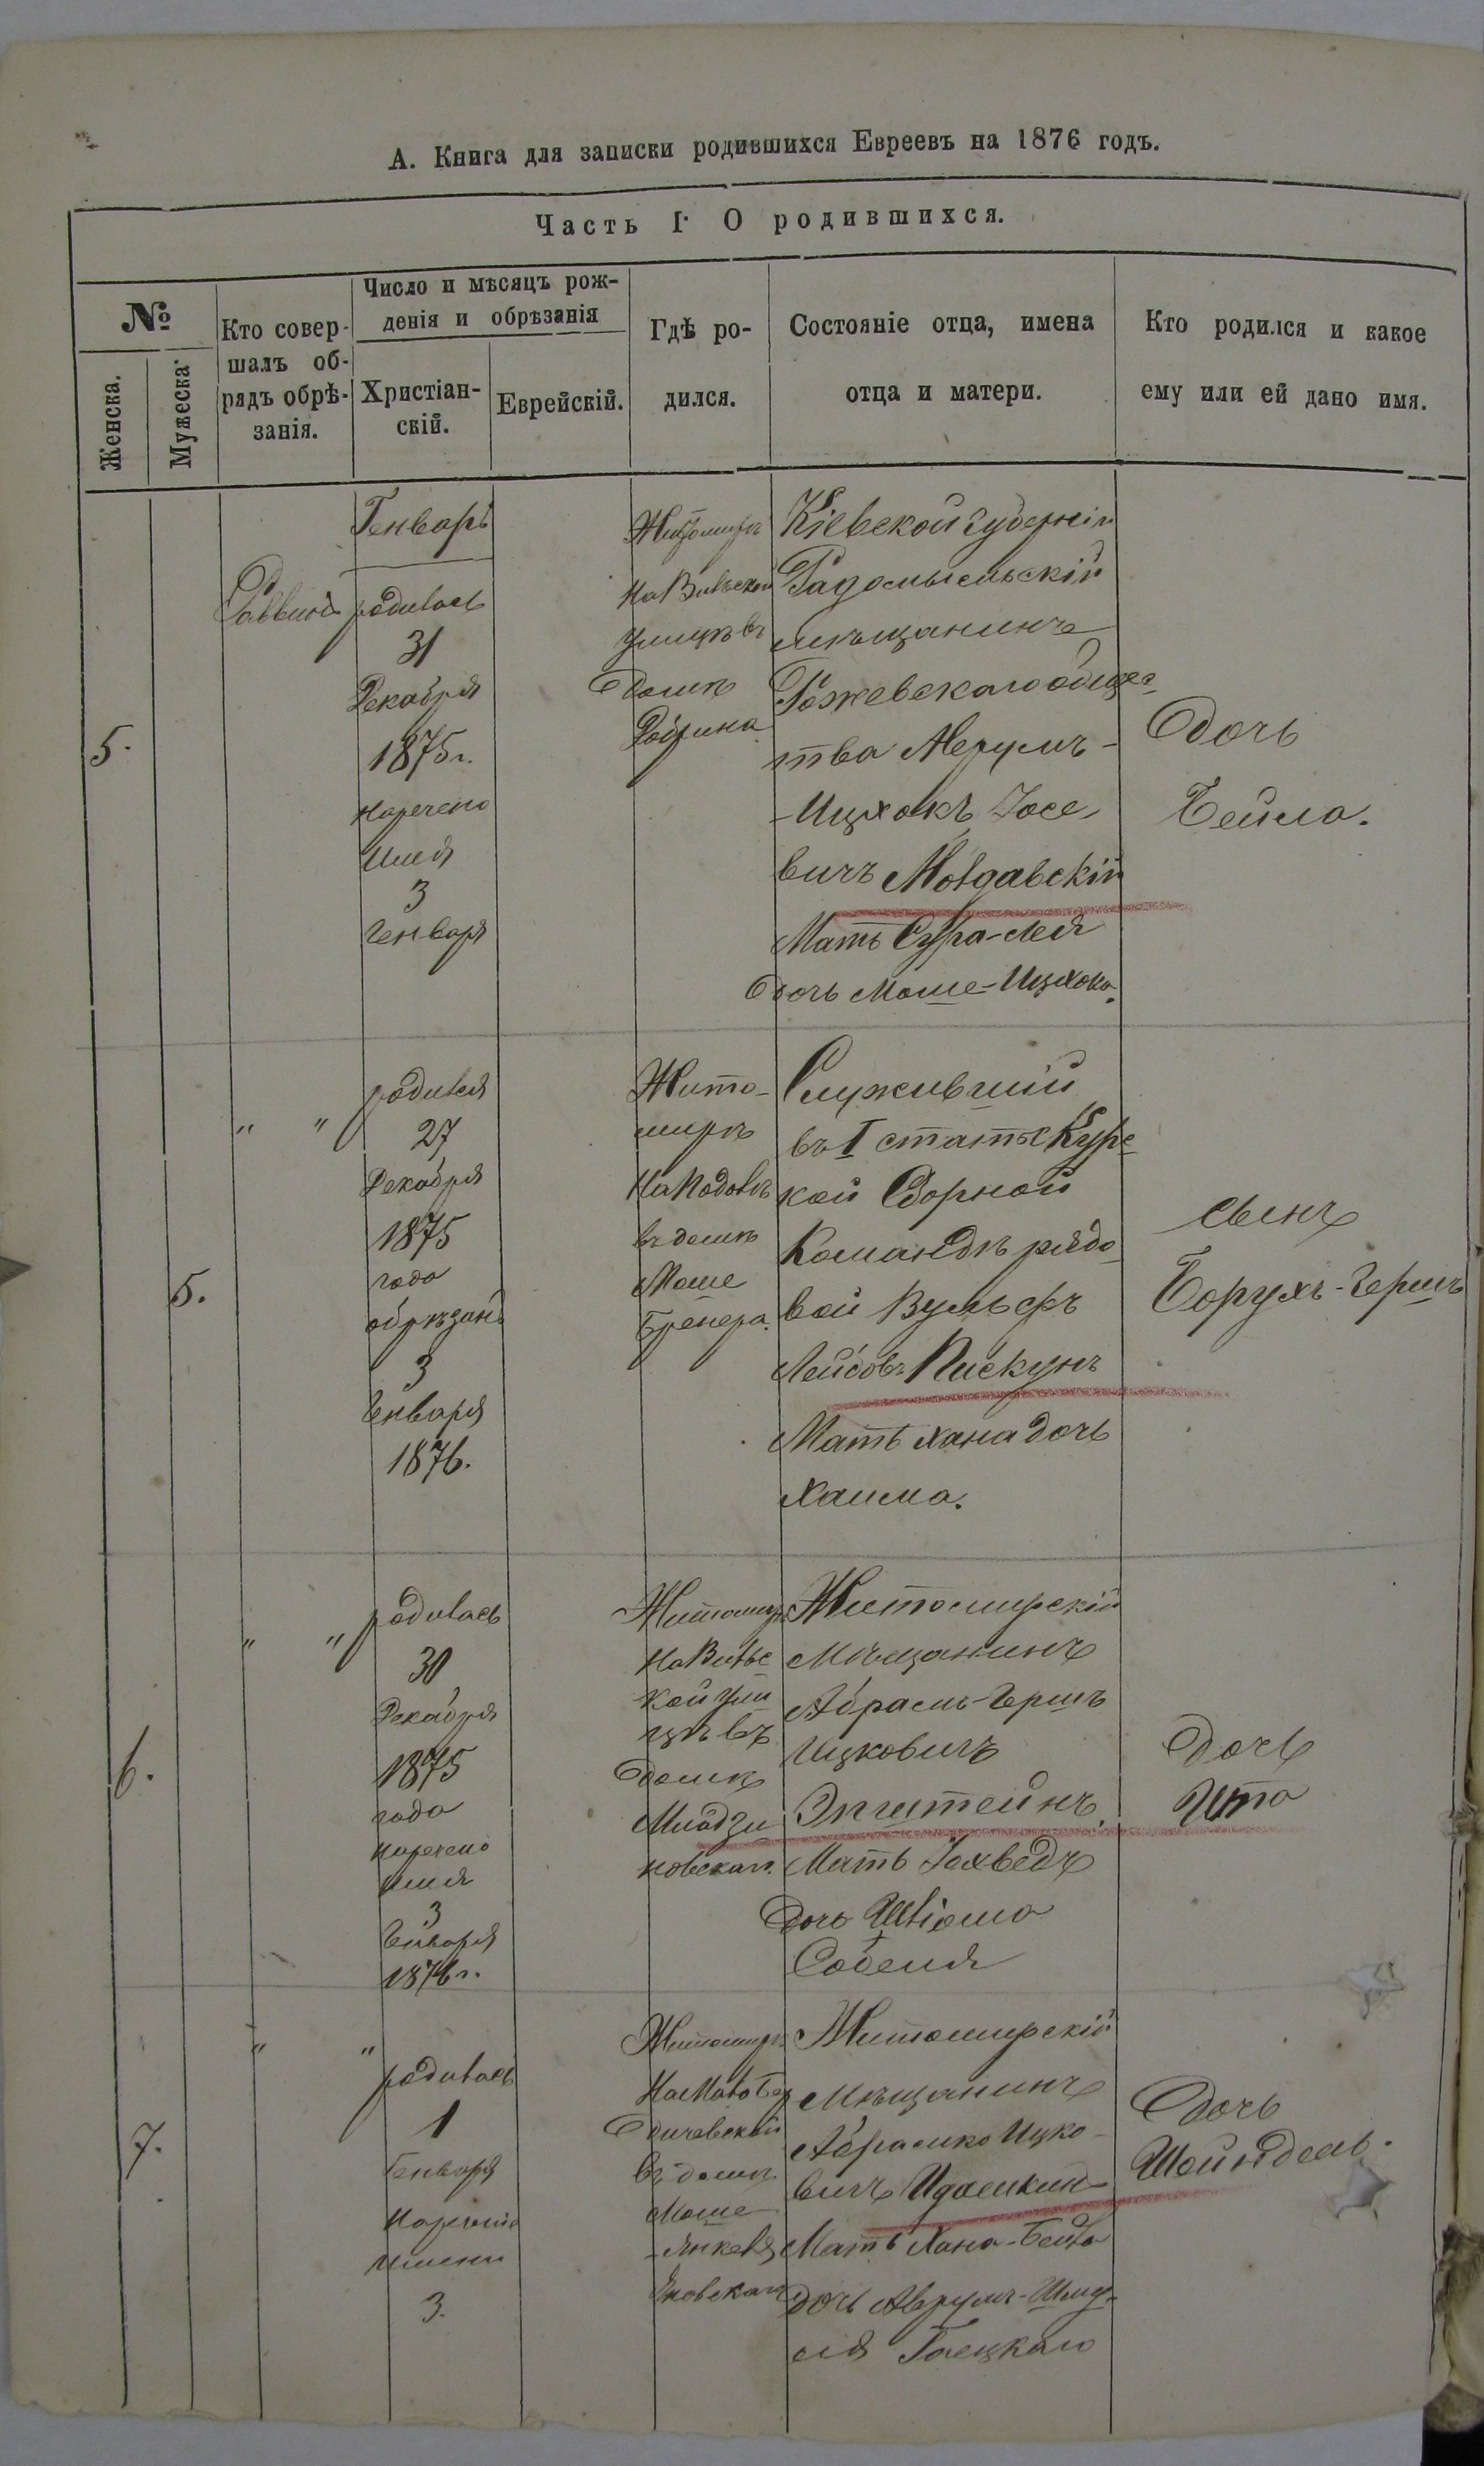 А. Книга для записки родившихся Евреевъ на 1876 годъ.
Часть I. О родившихся.
№
Женска.
Мужеска.
Кто совер-
шалъ об-
рядъ обрѣ-
занія.
Число и мѣсяцъ рож-
денія и обрѣзанія
Христіан-
скій.
Еврейскій.
Гдѣ ро-
дился.
Состояніе отца, имена
отца и матери.
Кто родился и какое
ему или ей дано имя.
5.
Раввинъ
Генварь
родилась
31
Декабря
1875 г.
наречено
имя
3
Генваря
Житомиръ
На Вильской
улицѣ въ
домѣ
Кіевской губерніи
Радомысльскій
мѣщанинъ
Рожевскаго общес-
тва Аврумъ-
-Ицхокъ Іосе-
вичъ Молдавскій
Мать Сура-Лея
дочь Моше-Ицхока.
дочь
Бейла.
5.
" "
родился
27
Декабря
1875
года
обрѣзанъ
3
Генваря
1876.
Жито-
миръ
На Подолѣ
въ домѣ
Моше
Служившій
въ I статье Курс-
кой Сборной
Командѣ рядо-
вой Вульфъ
Лейбовъ Пискунъ
Мать Хана дочь
Хаима.
сынъ
Борухъ-Гершъ
6.
" "
родилась
30
Декабря
1875
года
наречено
имя
3
Генваря
1876 г.
Житомиръ
На Вильс
кой ули
цѣ въ
домѣ
Житомирскій
Мѣщанинъ
Абрамъ-Гершъ
Ицковичъ
Эпштейнъ.
Мать Іохведъ
дочь
дочь
Ита
7.
" "
родилась
1
Генваря
Наречіе
имени
3.
Житомиръ
На Мало Бер
дичевской
въ домѣ
Моше
-Янкеля
Житомирскій
Мѣщанинъ
Абрамко Ицко-
вичъ
Мать Хана-Бейла
дочь Аврумъ-Шму-
ля
дочь
Шейндель.